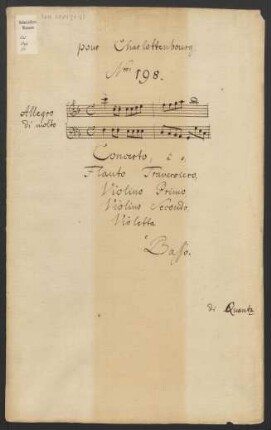 pour Charlottenbourg
Nro 198.
Allegro
di molto
Concerto, a 5.
Flauto Traversiero,
Violino Primo,
Violino Secondo,
Violetta
e
Basso.
di Quantz